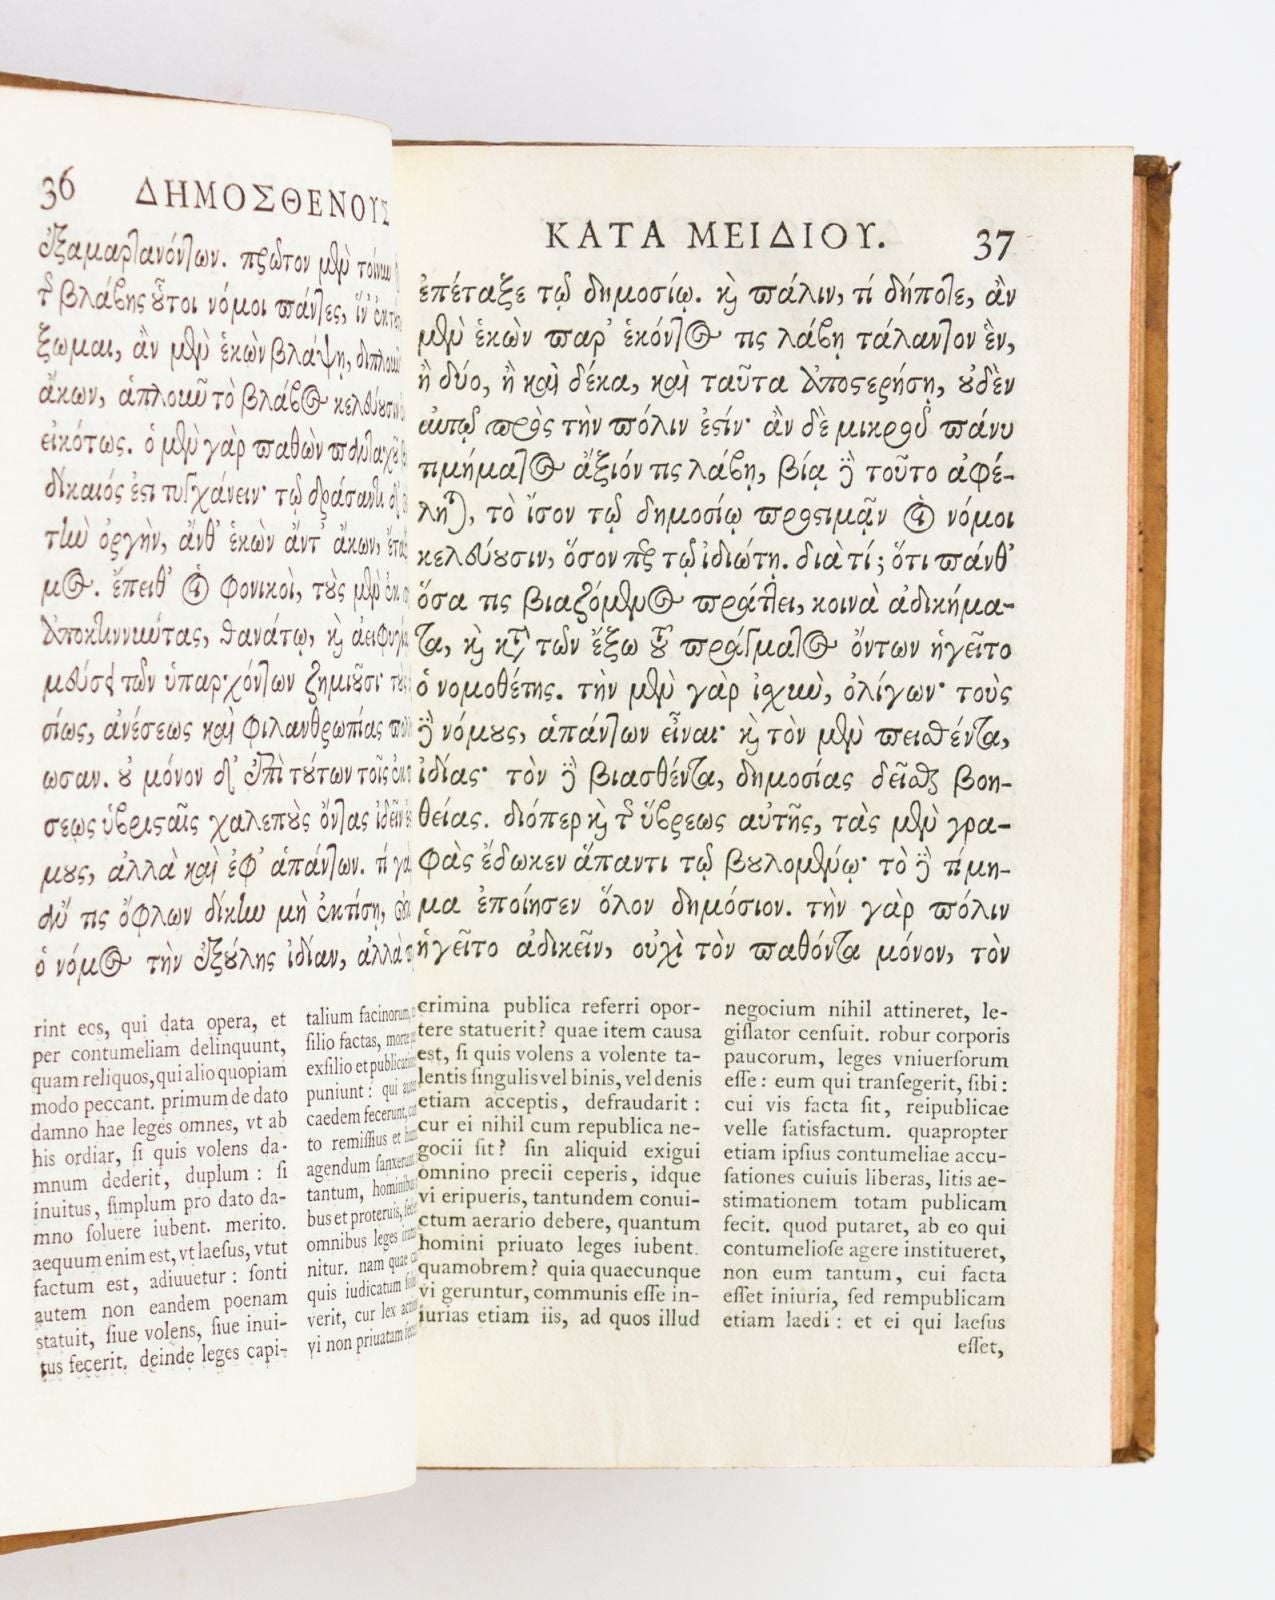 36 ΔΗΜΟΣΘΕΝΟΥΣ
ἐξαμαρτανόντων. πρῶτον μὲν τοίνυν
τῆς βλάβης οὗτοι νόμοι πάντες, ἵν' ἐκ
ξωμαι, ἂν μὲν ἑκὼν βλάψῃ, διπλοῦν
ἄκων, ἁπλοῦν τὸ βλάβος κελεύουσιν
εἰκότως. ὁ μὲν γὰρ παθὼν πανταχοῦ
δίκαιός ἐστι τυγχάνειν· τῷ δράσαντι δ'
τὴν ὀργὴν, ἄνθ' ἑκὼν ἄντ' ἄκων,
μος. ἔπειθ' οἱ φονικοὶ, τοὺς μὲν ἐκ
ἀποκτιννύντας, θανάτῳ, καὶ ἀειφυγίᾳ
μεύσει τῶν ὑπαρχόντων ζημιοῦσι·
σίως, ἀνέσεως καὶ φιλανθρωπίας
ωσαν. οὐ μόνον δ' ἐπὶ τούτων τοῖς ἐκ
σεως ὑβρισταῖς χαλεποὺς ὄντας ἰδεῖν
μους, ἀλλὰ καὶ ἐφ' ἁπάντων. τί γὰρ
δή τις ὄφλων δίκην μὴ ἐκτίσῃ,
ὁ νόμος τὴν ἐξούλης ἰδίαν, ἀλλὰ
rint eos, qui data opera, et
per contumeliam delinquunt,
quam reliquos, qui alio quopiam
modo peccant. primum de dato
damno hae leges omnes, vt ab
his ordiar, ſi quis volens da-
mnum dederit, duplum : ſi
inuitus, ſimplum pro dato da-
mno ſoluere iubent. merito.
aequum enim est, vt laeſus, vtut
factum est, adiuuetur : ſonti
autem non eandem poenam
statuit, ſiue volens, ſiue inui-
tus fecerit. deinde leges capi-
talium facinorum,
ſilio factas, morte
exſilio et publicatio
puniunt : qui
caedem fecerunt,
to remiſſius et
agendum ſanxerunt
tantum, hominibus
bus et proteruis,
omnibus leges
nitur. nam quae
quis iudicatum
verit, cur lex
vi non priuatam
ΚΑΤΑ ΜΕΙΔΙΟΥ. 37
ἐπέταξε τῷ δημοσίῳ. καὶ πάλιν, τί δήποτε, ἂν
μὲν ἑκὼν παρ' ἑκόντος τις λάβῃ τάλαντον ἓν,
ἢ δύο, ἢ καὶ δέκα, καὶ ταῦτα ἀποστερήσῃ, οὐδὲν
αὐτῷ πρὸς τὴν πόλιν ἐστίν· ἂν δὲ μικροῦ πάνυ
τιμήματος ἄξιόν τις λάβῃ, βίᾳ δὲ τοῦτο ἀφέ-
ληται, τὸ ἴσον τῷ δημοσίῳ προστιμᾷν οἱ νόμοι
κελεύουσιν, ὅσον περ τῷ ἰδιώτῃ. διὰ τί; ὅτι πάνθ'
ὅσα τις βιαζόμενος πράττει, κοινὰ ἀδικήμα-
τα, καὶ κατὰ τῶν ἔξω τοῦ πράγματος ὄντων ἡγεῖτο
ὁ νομοθέτης. τὴν μὲν γὰρ ἰσχὺν, ὀλίγων· τοὺς
δὲ νόμους, ἁπάντων εἶναι· καὶ τὸν μὲν πεισθέντα,
ἰδίας· τὸν δὲ βιασθέντα, δημοσίας δεῖσθαι βοη-
θείας. διόπερ καὶ τῆς ὕβρεως αὐτῆς, τὰς μὲν γρα-
φὰς ἔδωκεν ἅπαντι τῷ βουλομένῳ· τὸ δὲ τίμη-
μα ἐποίησεν ὅλον δημόσιον. τὴν γὰρ πόλιν
ἡγεῖτο ἀδικεῖν, οὐχὶ τὸν παθόντα μόνον, τὸν
crimina publica referri opor-
tere statuerit? quae item causa
est, ſi quis volens a volente ta-
lentis ſingulis vel binis, vel denis
etiam acceptis, defraudarit :
cur ei nihil cum republica ne-
gocii ſit? ſin aliquid exigui
omnino precii ceperis, idque
vi eripueris, tantundem conui-
ctum aerario debere, quantum
homini priuato leges iubent.
quamobrem? quia quaecunque
vi geruntur, communis eſſe in-
iurias etiam iis, ad quos illud
negocium nihil attineret, le-
giſlator cenſuit. robur corporis
paucorum, leges vniuerſorum
eſſe : eum qui tranſegerit, ſibi :
cui vis facta ſit, reipublicae
velle ſatisfactum. quapropter
etiam ipſius contumeliae accu-
ſationes cuiuis liberas, litis ae-
stimationem totam publicam
fecit. quod putaret, ab eo qui
contumelioſe agere institueret,
non eum tantum, cui facta
eſſet iniuria, ſed rempublicam
etiam laedi : et ei qui laeſus
eſſet,